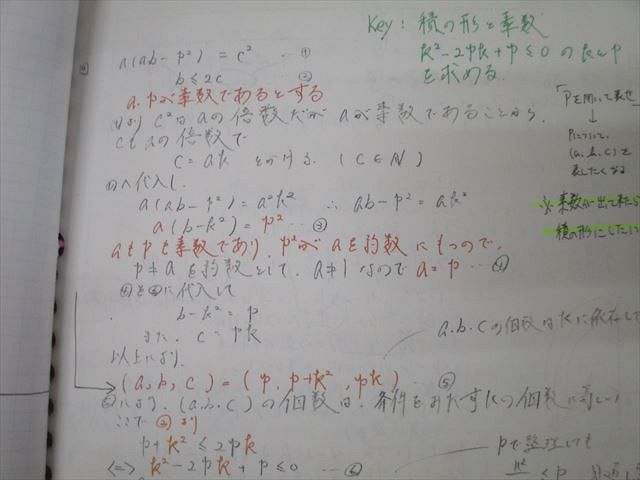 Key: 積の形と素数
k²-2pk+p≦0 のkとp
を求める.
a(ab-p²) = c² … ①
b≦2c ②
a.pが素数であるとする
①より c²はaの倍数だが aが素数であることから.
cもaの倍数で
c = ak とかける. (c∈N)
①へ代入し.
a(ab-p²) = a²k² ∴ ab-p² = ak²
a(b-k²) = p² … ③
aもpも素数であり. p²がaを約数にもつので.
pもaを約数として. a≠1なので a=p … ④
③を④に代入して
b-k² = p
また. c = pk
以上より.
(a, b, c) = (p, p+k², pk) … ⑤
⑤により. (a.b.c)の個数は. 条件をみたすkの個数に等しい
ここで ②より
p+k² ≦ 2pk
⇔ k²-2pk+p≦0 … ⑥
「pを用いて表せ
↓
pについて.
(a, b, c)を
表したくなる
※ 素数が出て来たら
積の形にしたい
a.b.cの個数はkに依存して
pで整理しても